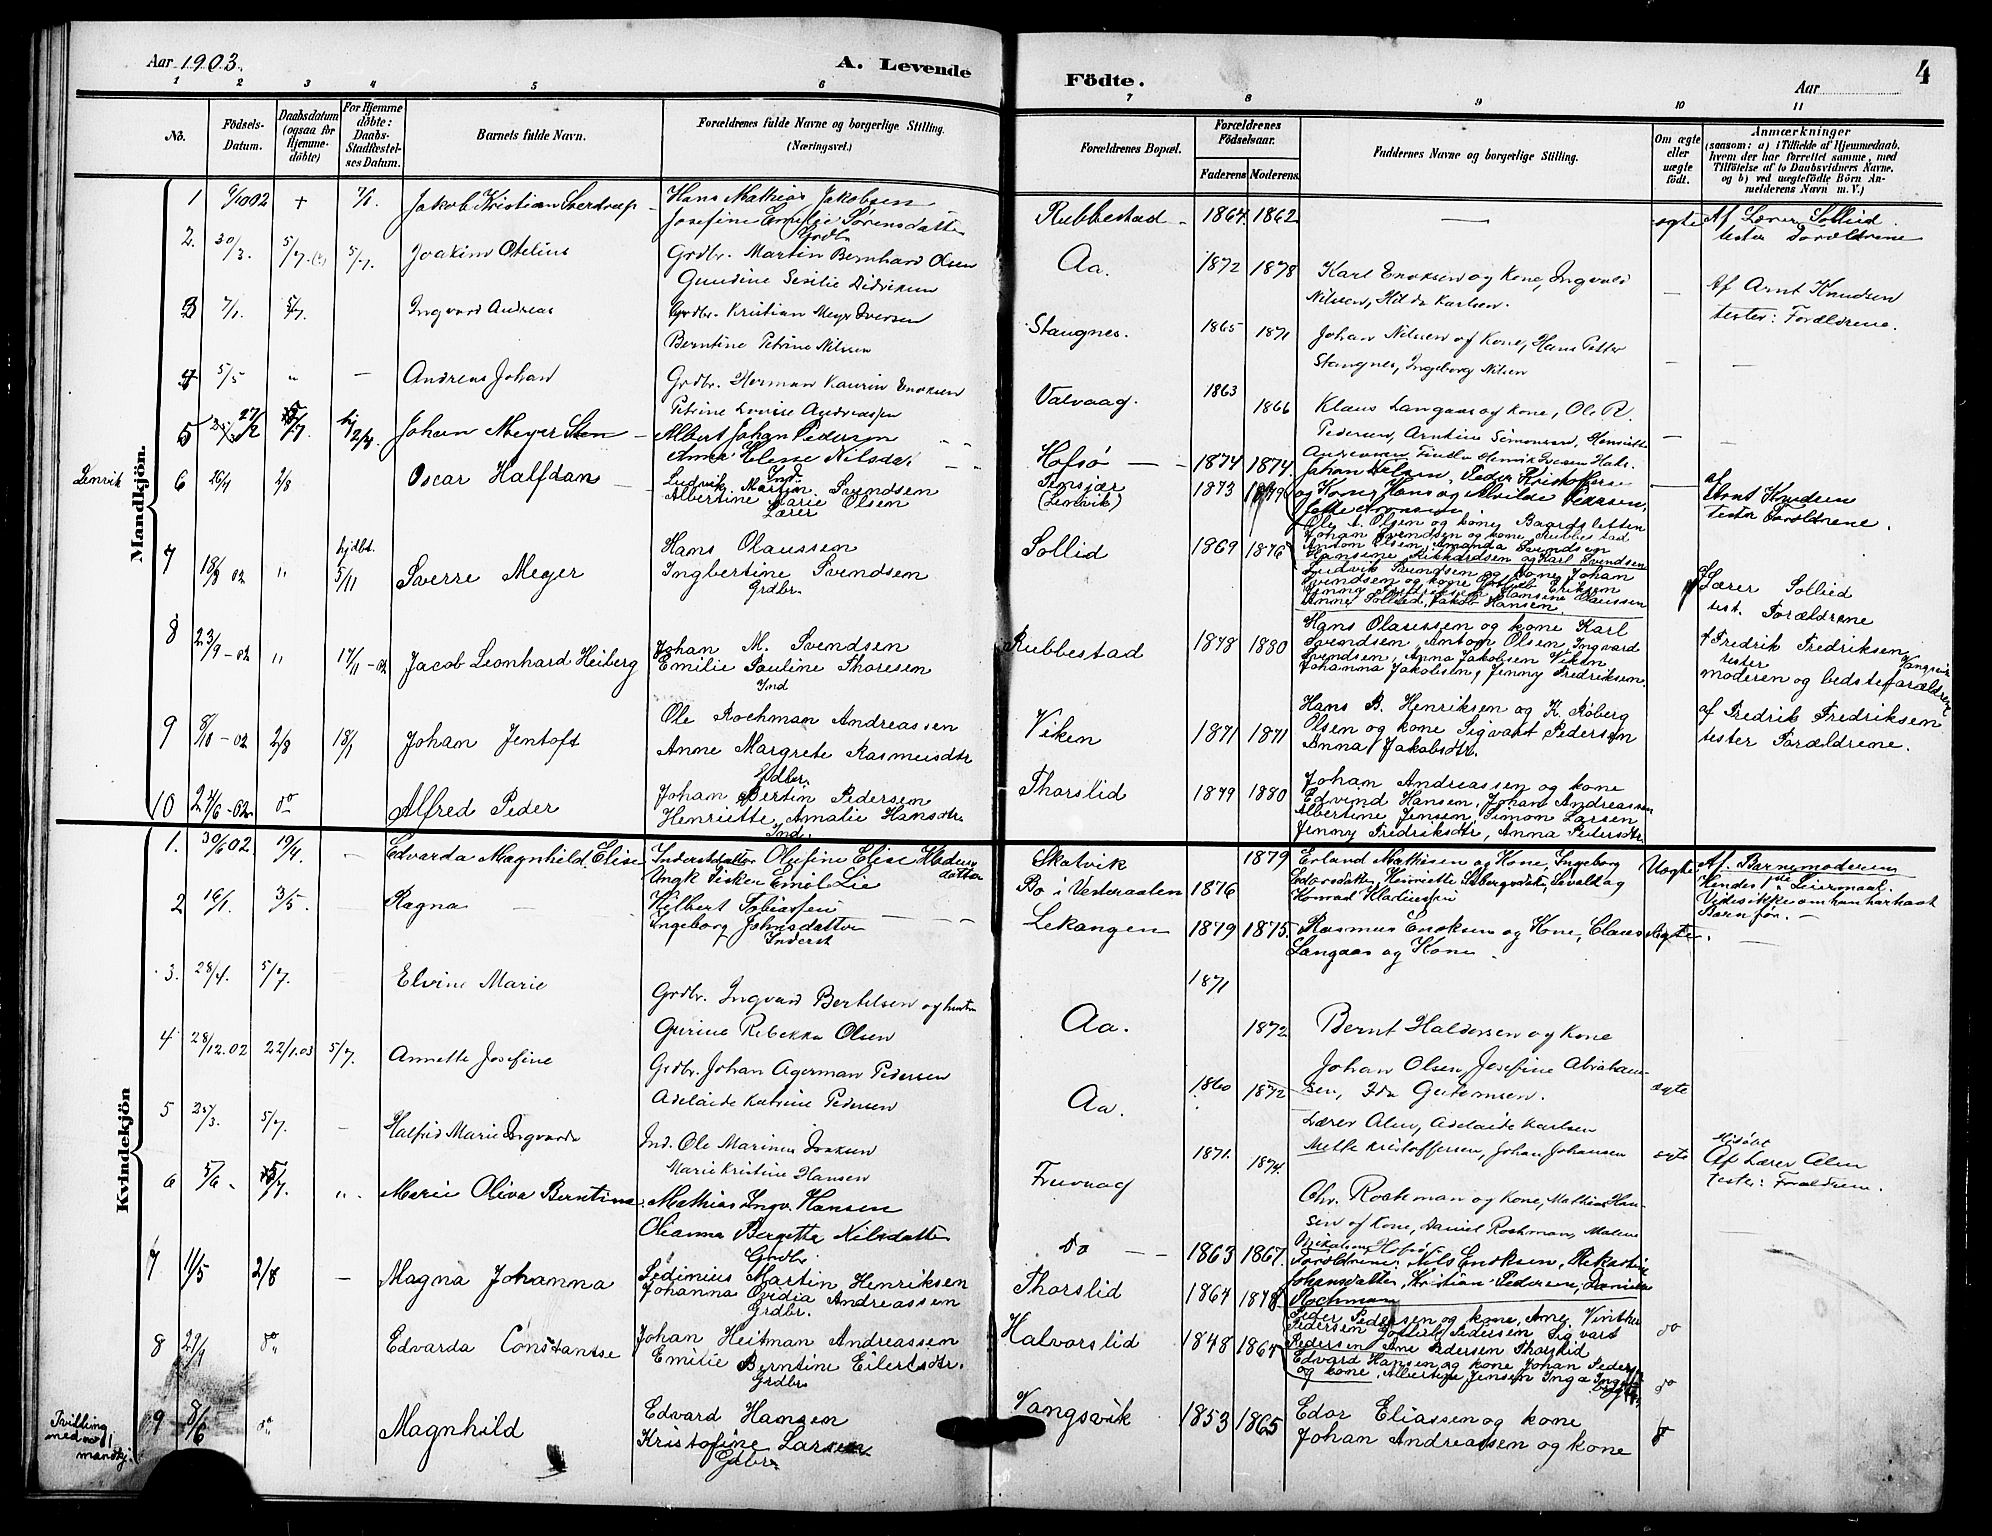 Aar 1903.
A. Levende
Födte.
Aar
4
1 2 3 4 5 6 7 8 9 10 11
No.
Födsels-
Datum.
Daabsdatum
(ogsaa for
Hjemme-
döbte)
For Hjemme
döbte:
Daabs-
Stadfæstel-
ses Datum.
Barnets fulde Navn.
Forældrenes fulde Navne og borgerlige Stilling.
(Næringsvei.)
Forældrenes Bopæl.
Forældrenes
Födselsaar.
Faderens Moderens.
Faddernes Navne og borgerlige Stilling.
Om ægte
eller
uægte
födt.
Anmærkninger
(saasom: a) i Tilfælde af Hjemmedaab.
hvem der har forrettet samme, med
Tilföielse af to Daabsvidners Navne.
og b) ved uægtefödte Börn An-
melderens Navn m. V.)
Mandkjön.
1 + 7/1. Jakob Kristian Sverdrup
Hans Mathias Jakobsen
Josefine Emelie Sørensdatter
Grdbr
Rubbestad 1864 1862 — ægte Af Lærer Sollid
tester Forældrene
2. 30/3. 5/7 5/7. Joakim Otelius
Grdbr. Martin Bernhard Olsen
Gundine Sesilie Didriksen
Aa. 1872 1878 Karl Enoksen og Kone, Ingvald
Nilsen, Hilda Karlsen. — Af Arnt Knudsen
tester: Forældrene.
3 7/1. 5/7. Ingvard Andreas
Grdbr. Kristian Meyr Iversen
Berntine Petrine Nilssen
Stangnes. 1865 1871 Johan Nilssen og Kone, Hans Petter
Stangnes, Ingeborg Nilsen —
4 5/5 " — Andreas Johan
Grdbr. Herman Kaurin Enoksen
Petrine Lovise Andreassen
Valvaag. 1863 1866 Klaus Langaas og Kone, Ole R.
Pedersen, Arntine Simonsen, Henriette —
5 27/2 5/7. Johan Meyer Sten
Albert Johan Pedersen
Anna Helene Nilsdat
Hofsø 1874 1874
Lenvik
6 26/4 2/8 Oscar Halfdan
Ind.
Ludvik Martin Svendsen
Albertine Marie Olsen
Lærer
(Lenvik) 1873 1879
og Kone, Hans og Alvilde Pedersen,
af
Arnt Knudsen
tester Forældrene.
7 18/9 02 " hjdbt. 5/11 Sverre Meyer
Hans Olaussen
Ingbertine Svendsen
Grdbr.
Sollid 1869 1876
Ole A. Olsen og kone, Baardsletten
Johan Svendsen og kone Rubbestad
Anton Olsen, Amanda Svendsen
Hansine Rikhardsen og Karl Svendsen
Ludvik Svendsen og kone, Johan
Anne Sollid, Jakob Hansen.
Lærer Sollid
test. Forældrene
8 23/9-02 " 17/11-02 Jacob Leonhard Heiberg
Johan M. Svendsen
Emilie Pauline Thoresen
Ind
Rubbestad 1878 1880
Hans Olaussen og kone Karl
Svendsen, Anton Olsen, Ingvard
Svendsen, Anna Jakobsen Viken
Johanna Jakobsen, Jenny Fredriksen.
af Fredrik Fredriksen
Vangsvik
tester
moderen og bedsteforældrene
9 8/10-02 2/8 18/1 Johan Jentoft
Ole Rochman Andreassen
Anne Margrete Rasmusdtr
Grdbr.
Viken 1871 1871
Hans B. Henriksen og K. Røberg
Olsen og kone Sigvart Pedersen
Anna Jakobsdtr.
af Fredrik Fredriksen
tester Forældrene.
10 do Alfred Peder
Johan Bertin Pedersen
Henriette Amalie Hansdtr.
Ind.
Thorslid 1879 1880
Johan Andreassen og kone
Edvind Hansen, Johan Andreassen
Albertine Jensen, Simon Larsen
Jenny Fredriksdtr, Anna Petersdtr
Kvindekjön
1. 30/6 02. 19/4. — Edvarda Magnhild Elise
Inderst datter Olufine Elise
datter
Ungk Fisker Emil Lie
Skatvik 1879
Bø i Vesteraalen 1876
Erland Mathisen og Kone, Ingeborg
Uægte Af Barnemoderen
Hendes 1ste Leiermaal.
Vides ikke om han har havt
Barn før. —
2 16/1. 3/5. Ragna
Hilbert Tobiassen
Ingeborg Johnsdatter
Inderst
Lekangen 1879 1875. Rasmus Enoksen og Kone, Claus
Langaas og Kone. ægte.
3. 28/4. 5/7. Elvine Marie
Grdbr. Ingvard Bertelsen og hustru
Gurine Rebekka Olsen
Aa. 1871 1872 Bernt Haldorsen og Kone
4 28/12.02 22/1.03 5/7. Annette Josefine
Grdbr. Johan Agerman Pedersen
Adelaide Katrine Pedersen
Aa. 1860 1872 Johan Olsen, Josefine Abraham-
sen, Ida Gutormsen. ægte
5 25/3. 5/7. — Halfrid Marie Ingvarda
Ind. Ole Marinus Isaksen
Marie Kristine Hansen
Fruvaag 1871. 1874. Lærer Alm, Adelaide Karlsen
Mette Kristoffersen, Johan Johansen ægte
Af Lærer Alm
tester: Forældrene.
6 5/6 5/7. " Marie Oliva Berntine
Mathias Ingv. Hansen
Olianna Bergitta Nilsdatter
Grdbr
Do 1863 1867.
Chr. Rochman og Kone, Mathias Han-
sen og Kone, Daniel Rochman, Malene
7 11/5 2/8 — Magna Johanna
Sedinius Martin Henriksen
Johanna Ovidia Andreassen
Grdbr.
Thorslid 1864 1878
Forældrene. Nils Enoksen,
Johansdatter, Kristian Pedersen,
Rochman
Peder Pedersen og kone, Ane Vinther
Pedersen Sigvart
Pedersen Ane Pedersen Thorslid
do
8 do Edvarda Constantse
Johan Heitman Andreassen
Emilie Berntine Eilertsdtr.
Grdbr.
Halvorslid 1848 1864
Edvard Hansen og kone Johan Peders
og kone, Albertine Jensen Inga
do
Tvilling
med no 1
mandkj.
9 8/6 do Magnhild
Edvard Hansen
Kristofine Larsen
Gdbr.
Vangsvik 1853 1865 Edor Eliassen og kone
Johan Andreassen og kone